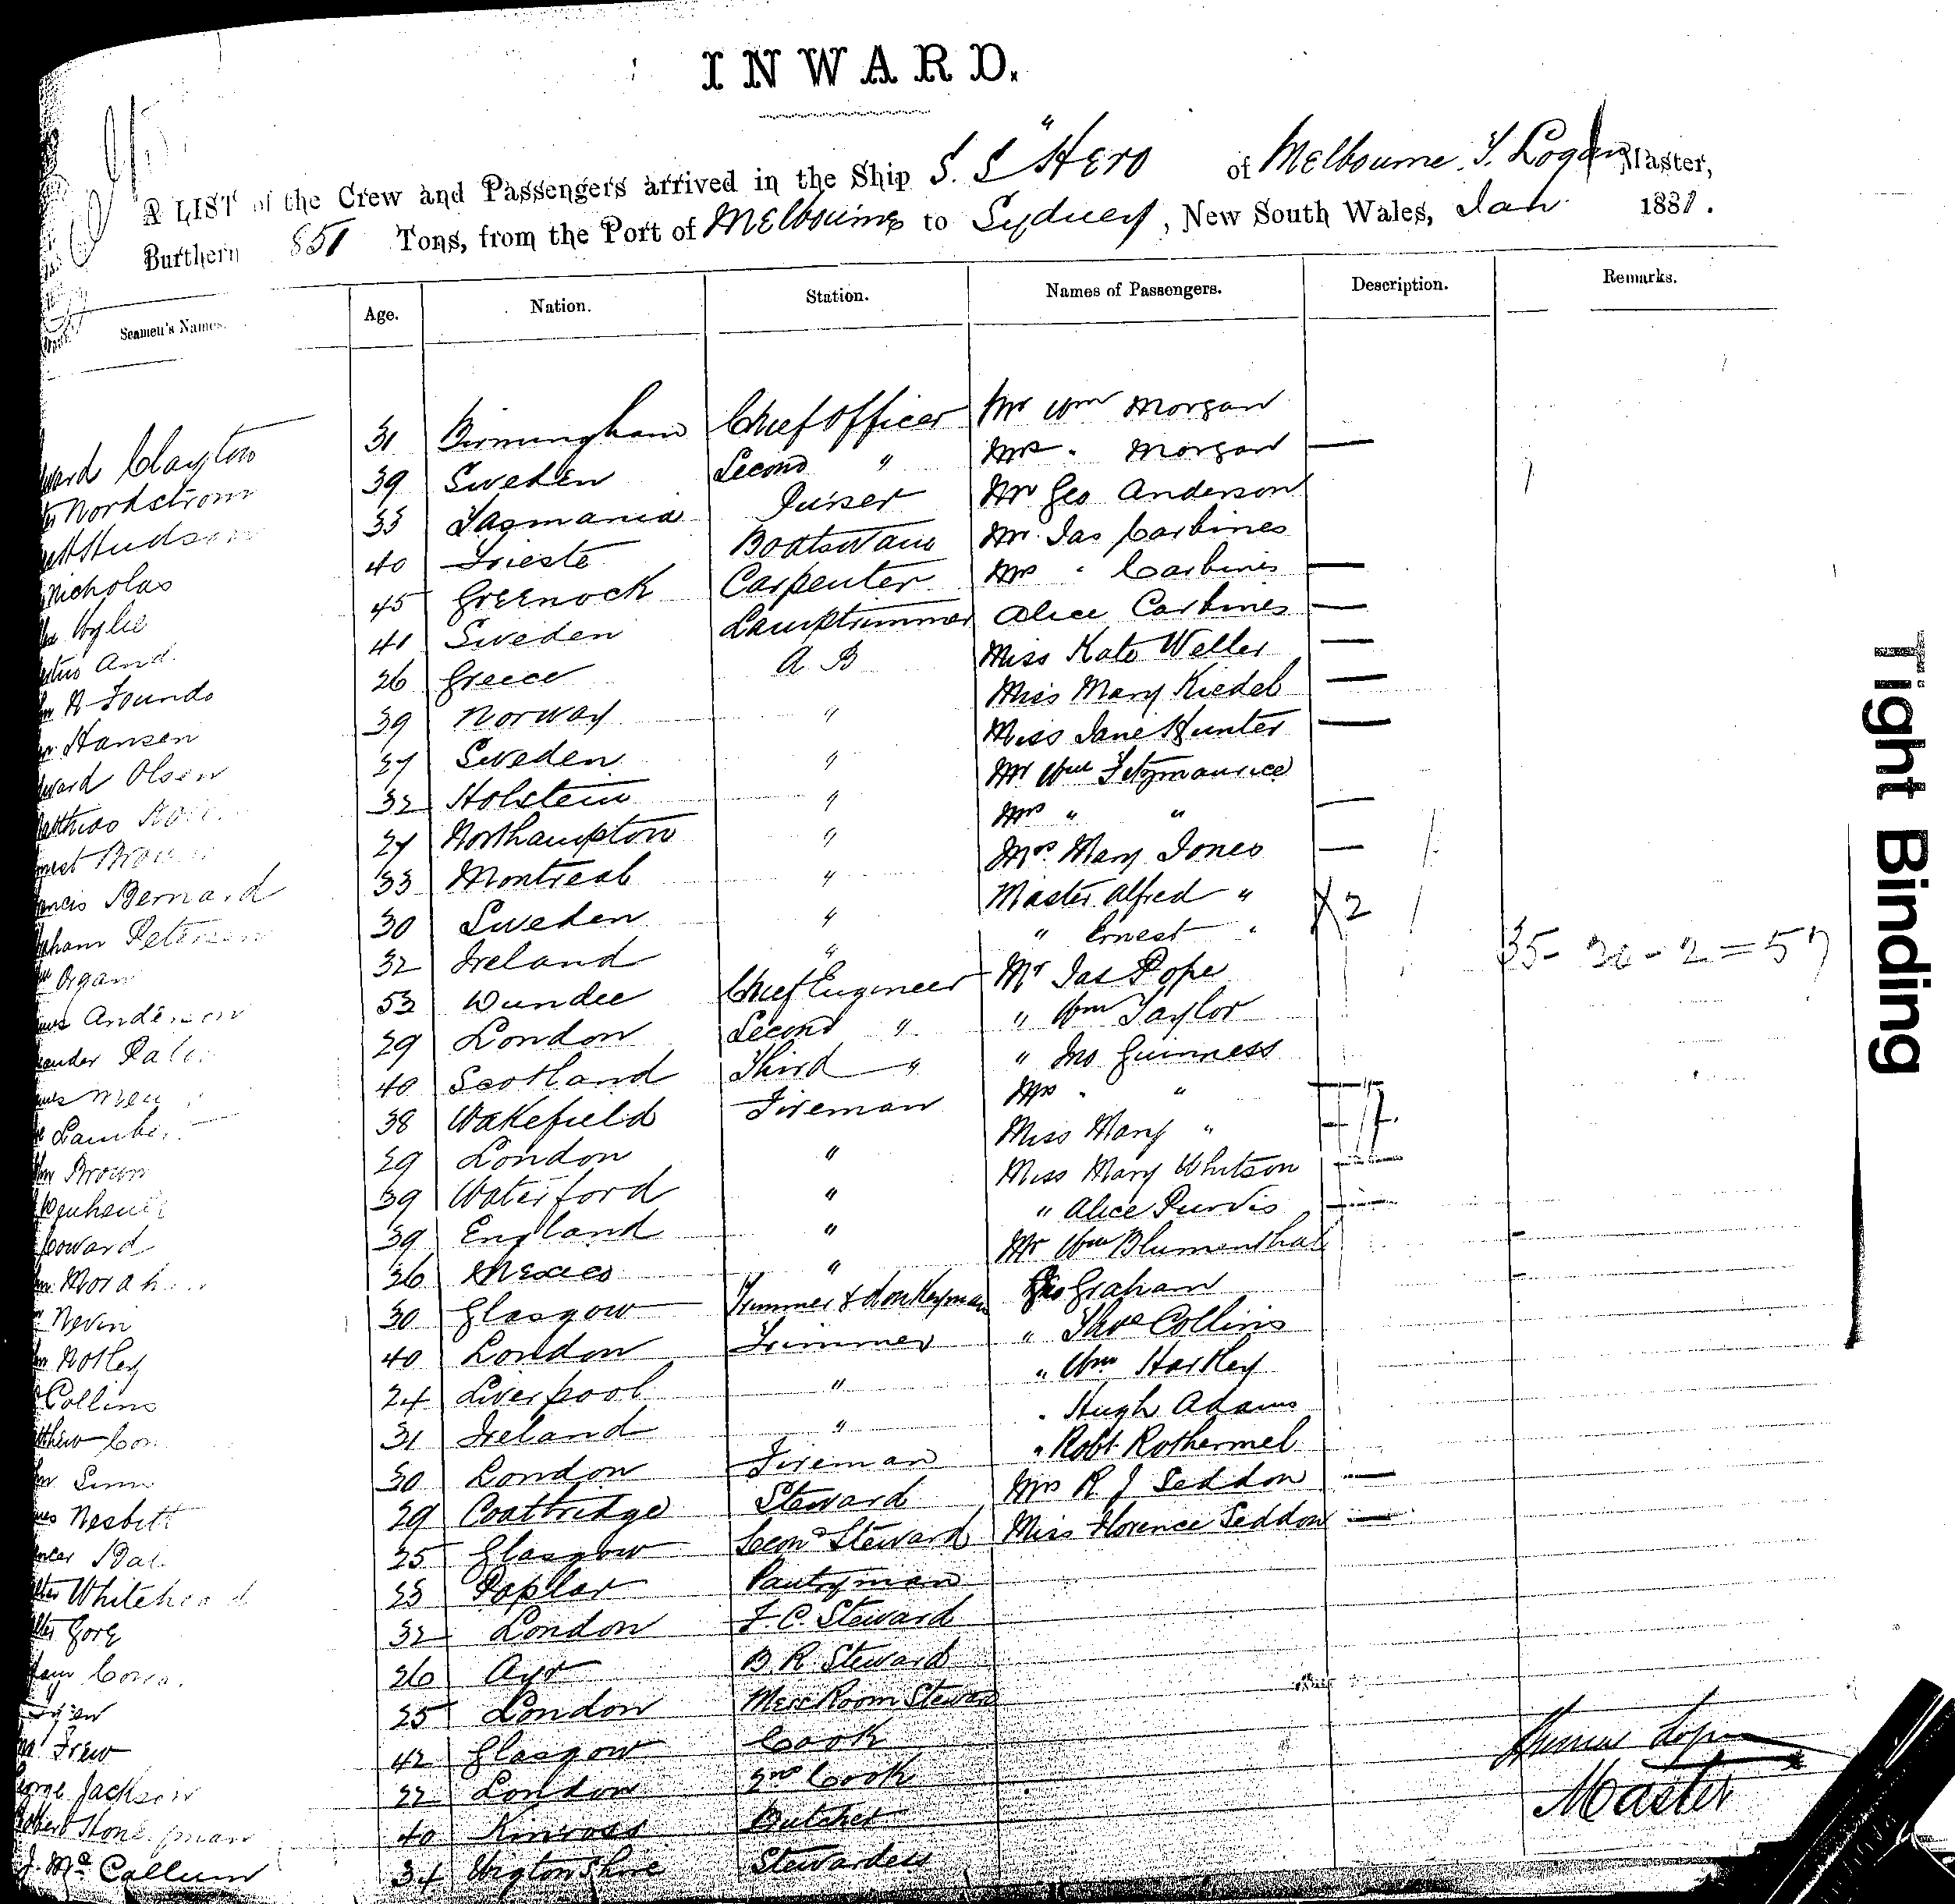 INWARD.
A LIST of the Crew and Passengers arrived in the Ship S. S "Hero of Melbourne. T. Logan Master,
Burthern 851 Tons, from the Port of Melbourne to Sydney, New South Wales, Jan 1881.
Seamen's Names. Age. Nation. Station. Names of Passengers. Description. Remarks.
ward Clayton 31 Birmingham Chief Officer Mr Wm Morgan
Nordstrom 39 Sweden Second " Mrs . Morgan —
Hudson 33 Tasmania Purser Mr Geo Anderson
Nicholas 40 Trieste Boatswain Mr. Jas Carbines
Wylie 45 Greenock Carpenter Mrs " Carbines —
And. 41 Sweden Lamptrimmer Alice Carbines —
A Foundo 26 Greece A B Miss Kate Weller —
Hansen 39 Norway " Miss Mary Kiedel —
ward Olsen 27 Sweden " Miss Jane Hunter —
atthias 32 Holstein " Mr Wm Fitzmaurice
nest Brown 27 Northampton " Mrs " " —
ancis Bernard 33 Montreal " Mrs Mary Jones —
aham Petersen 30 Sweden " Master Alfred " X2
Organ 32 Ireland " " Ernest "
Anderson 53 Dundee Chief Engineer Mr Jas Pope 35- 20 - 2 = 57
xander 29 London Second " " Wm Taylor
40 Scotland Third " " Jno Guinness
Lambe 38 Wakefield Fireman Mrs . "
Brown 29 London " Miss Mary "
39 Waterford " Miss Mary Whitson —
oward 39 England " " Alice Purvis —
Morah 26 Mexico " Mr Wm Blumenthal
Nevin 30 Glasgow Trimmer & donkeyman Geo Graham
Notley 40 London Trimmer " Thos Collins
Collins 24 Liverpool " " Wm Hartley
tthew 31 Ireland " " Hugh Adams
30 London Fireman " Robt Rothermel
Nesbitt 29 Coatbridge Steward Mrs R J Seddon —
25 Glasgow Secon Steward Miss Florence Seddon —
Whitehead 23 Poplar Pantryman
Gore 32 London F. C. Steward
26 Ayr B. R. Steward
25 London Mess Room Steward
Frew 42 Glasgow Cook
eorge Jackson 22 London 2nd Cook
Robert 40 Kinross Butcher
J. Mc Callum 34 Wigtonshire Stewardess
Thomas Logan
Master
Tight Binding